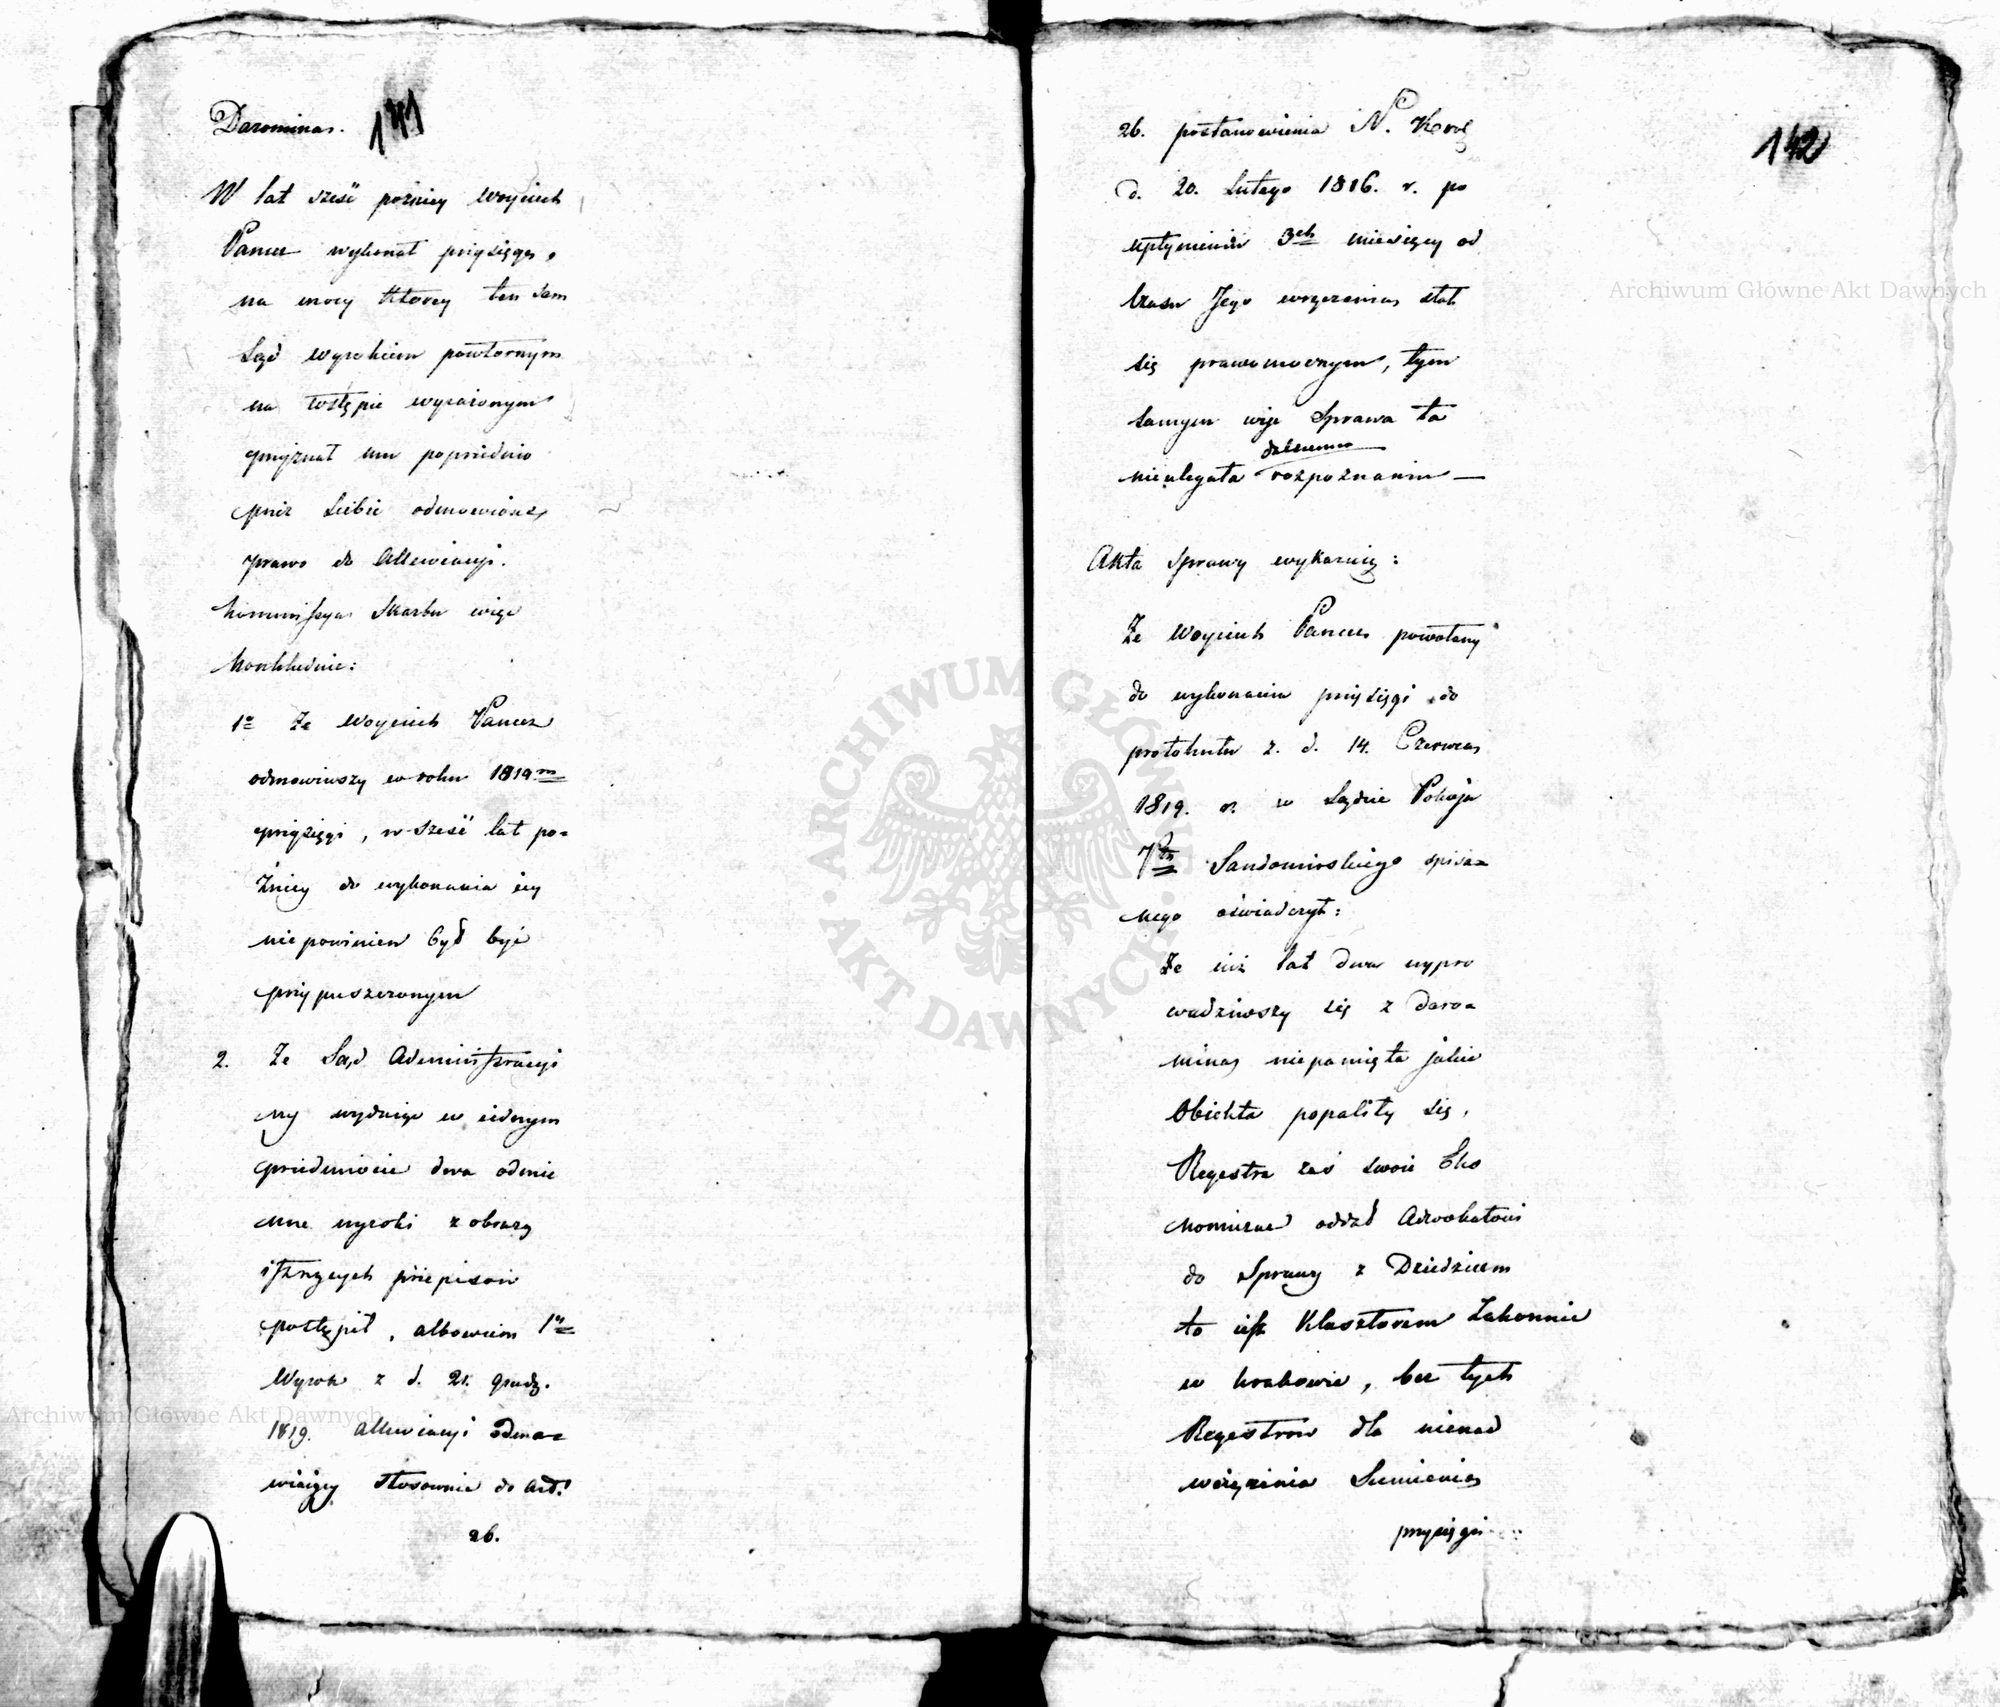 Daromina.
141
W lat sześć pózniey Woyciech
Pancer wykonał przysięgę,
na mocy którey ten sam
Sąd wyrokiem powtórnym
na wstępie wyrażonym
przyznał mu poprzednio
przez Siebie odmówione
prawo do Allewiacyi.
Kommissya Skarbu więc
Konkluduie:
1o Że Woyciech Pancer
odmówiwszy w roku 1819m
przysięgi, w sześć lat po=
źniey do wykonania iey
niepowinien był być
przypuszczonym
2. Że Sąd Administracyi
ny wydaiąc w iednym
przedmiocie dwa odmie
nne wyroki z obrazą
istnących przepisów
postąpił, albowiem 1y
Wyrok z d. 21. Grudz.
1819. Allewiacyi odma=
wiaiący stosownie do Art.
26.
142
26. postanowienia N. Króla
d. 20. Lutego 1816. r. po
upłynieniu 3ch miesięcy od
czasu Jego wręczenia stał
się prawomocnym, tym
samym więc Sprawa ta
dalszemu
nieulegała rozpoznaniu —
Akta Sprawy wykazuią:
Że Woyciech Pancer powołany
do wykonania przysięgi do
protokułu z. d. 14. Czerwca
1819. r. w Sądzie Pokoju
Ptu Sandomirskiego spisa=
nego oświadczył:
Że iuż lat dwa wypro
wadziwszy się z Daro=
mina niepamięta jakie
Obiekta popaliły się,
Regestra zaś swoie Eko
nomiczne oddał Adwokatowi
do Sprawy z Dziedzicem
to iest Klasztorem Zakonnic
w Krakowie, bez tych
Regestrów dla nienad
weręzienia Sumienia
przysięgi
Archiwum Główne Akt Dawnych
Archiwum Główne Akt Dawnych
ARCHIWUM GŁÓWNE · AKT DAWNYCH ·